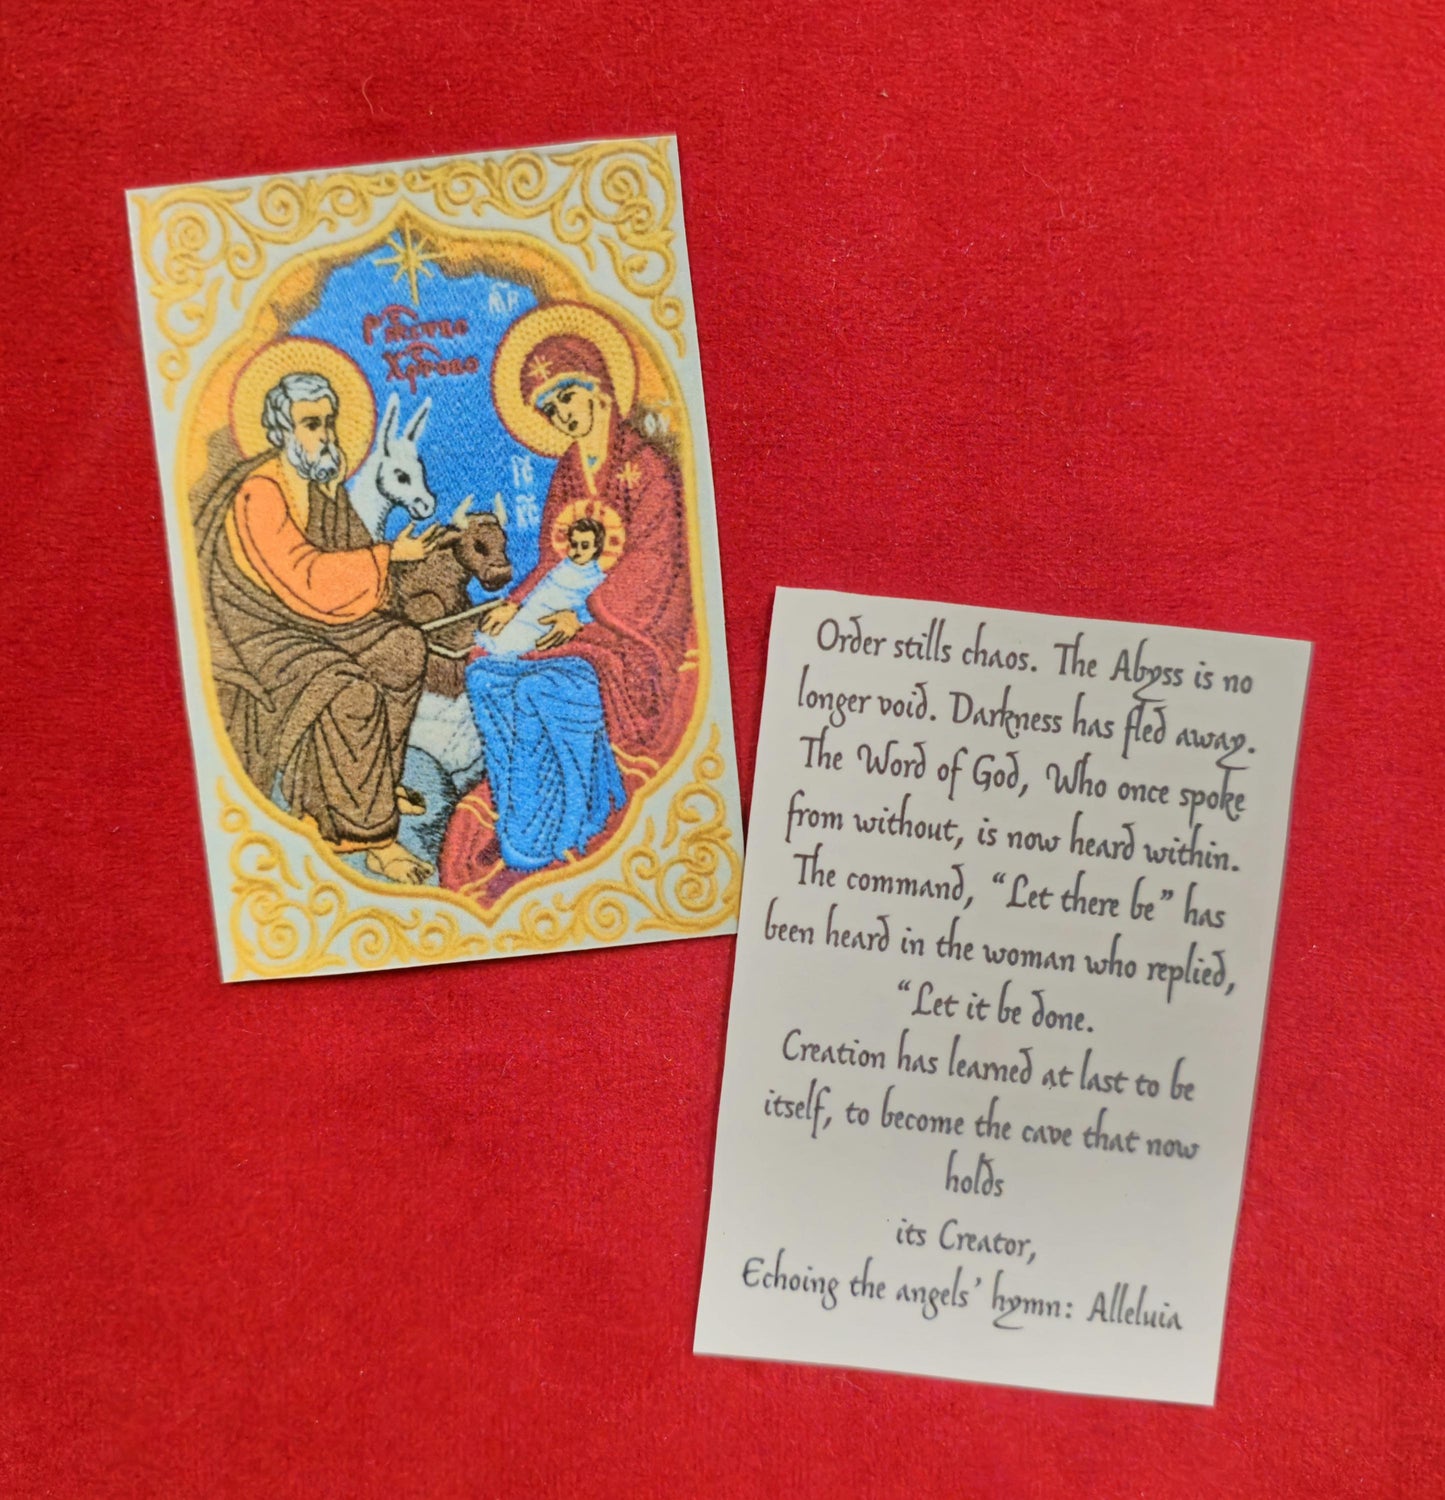 М҃Р
Рж҃ство
Хр҃тово
І҃С
Х҃С
Order stills chaos. The Abyss is no
longer void. Darkness has fled away.
The Word of God, Who once spoke
from without, is now heard within.
The command, “Let there be” has
been heard in the woman who replied,
“Let it be done.
Creation has learned at last to be
itself, to become the cave that now
holds
its Creator,
Echoing the angels’ hymn: Alleluia